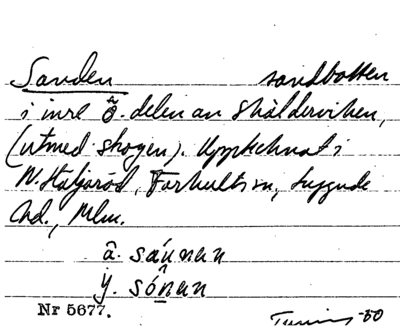 Sanden sandbotten
i inre ö. delen av Skälderviken,
(utmed skogen). Upptecknat i
N. Häljaröd, Farhults sn, Luggude
hd., Mlm.
ä. saunen
y. sónen
Nr 5677.
-50